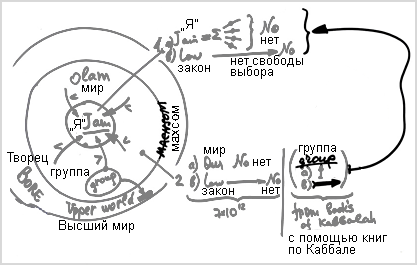 „Я"
1. a) I am = Σ No
нет
b) Law → No
закон
нет свободы
выбора
Olam
мир
„Я"
I am
MACHSOM
махсом
Творец
BORE
группа
group
Upper world
Высший мир
мир
2 a) Our No нет
b) Law → No
закон
нет
7×10¹²
группа
group
a)
b)
from books
of Kabbalah
с помощью книг
по Каббале